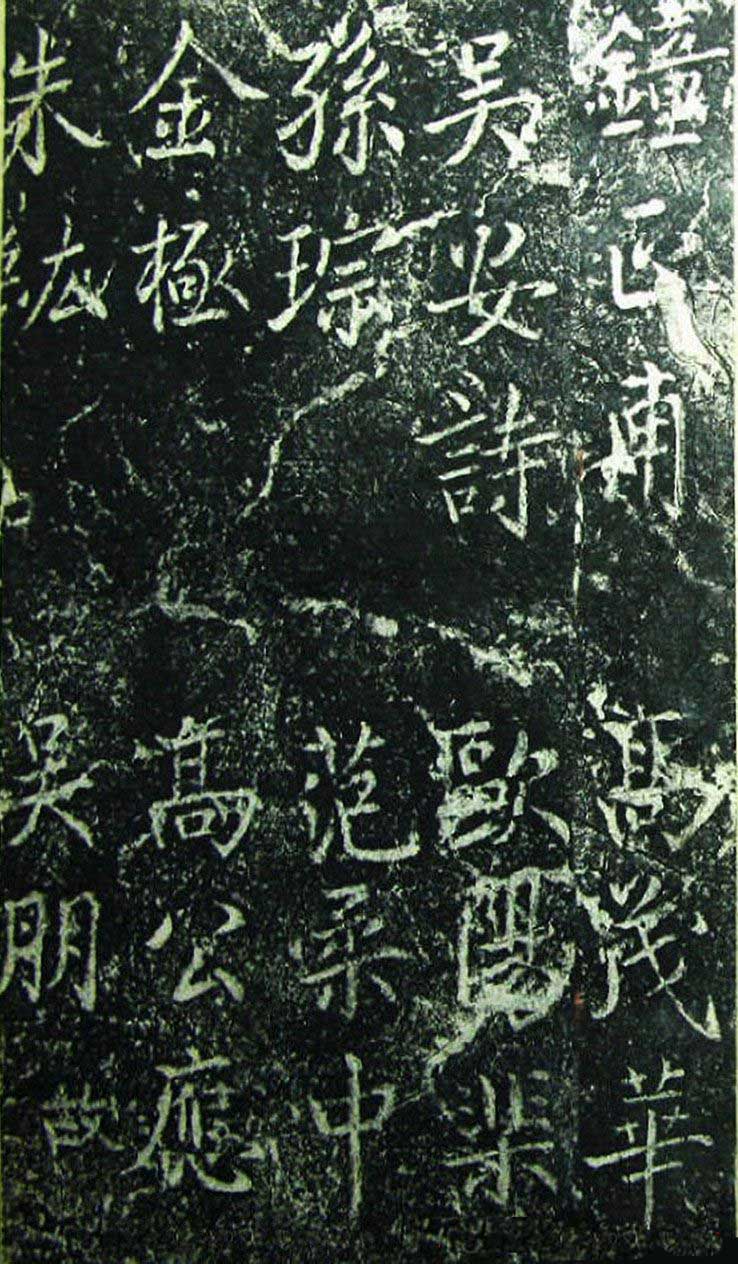 鐘正甫 高茂華
吳安詩 歐陽棐
孫琮 范柔中
金極 高公應
朱紘 吳朋 故